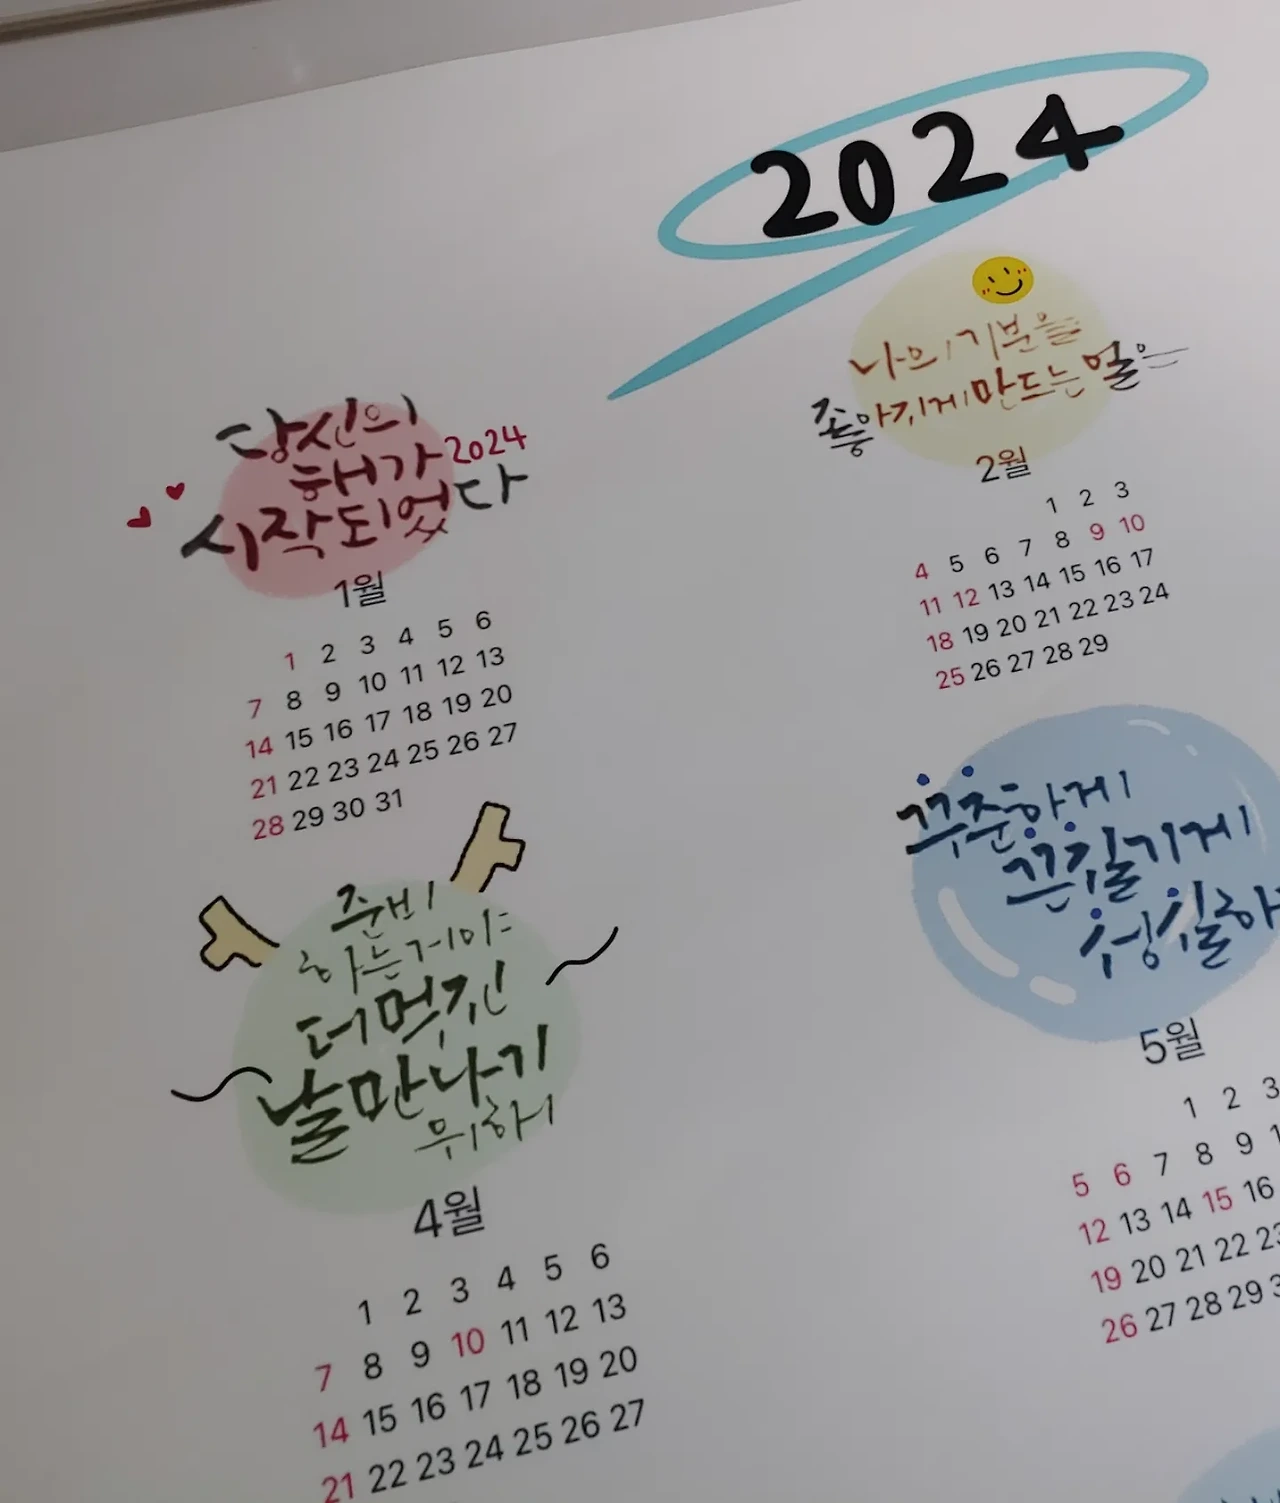 2024
당신의
해가 2024
시작되었다
1월
1 2 3 4 5 6
7 8 9 10 11 12 13
14 15 16 17 18 19 20
21 22 23 24 25 26 27
28 29 30 31
나의 기분을
좋아지게 만드는 일은
2월
1 2 3
4 5 6 7 8 9 10
11 12 13 14 15 16 17
18 19 20 21 22 23 24
25 26 27 28 29
준비
하는 거야
더 멋진
날 만나기
위해
4월
1 2 3 4 5 6
7 8 9 10 11 12 13
14 15 16 17 18 19 20
21 22 23 24 25 26 27
꾸준하게
끈질기게
성실하
5월
1 2 3
5 6 7 8 9
12 13 14 15 16
19 20 21 22 23
26 27 28 29